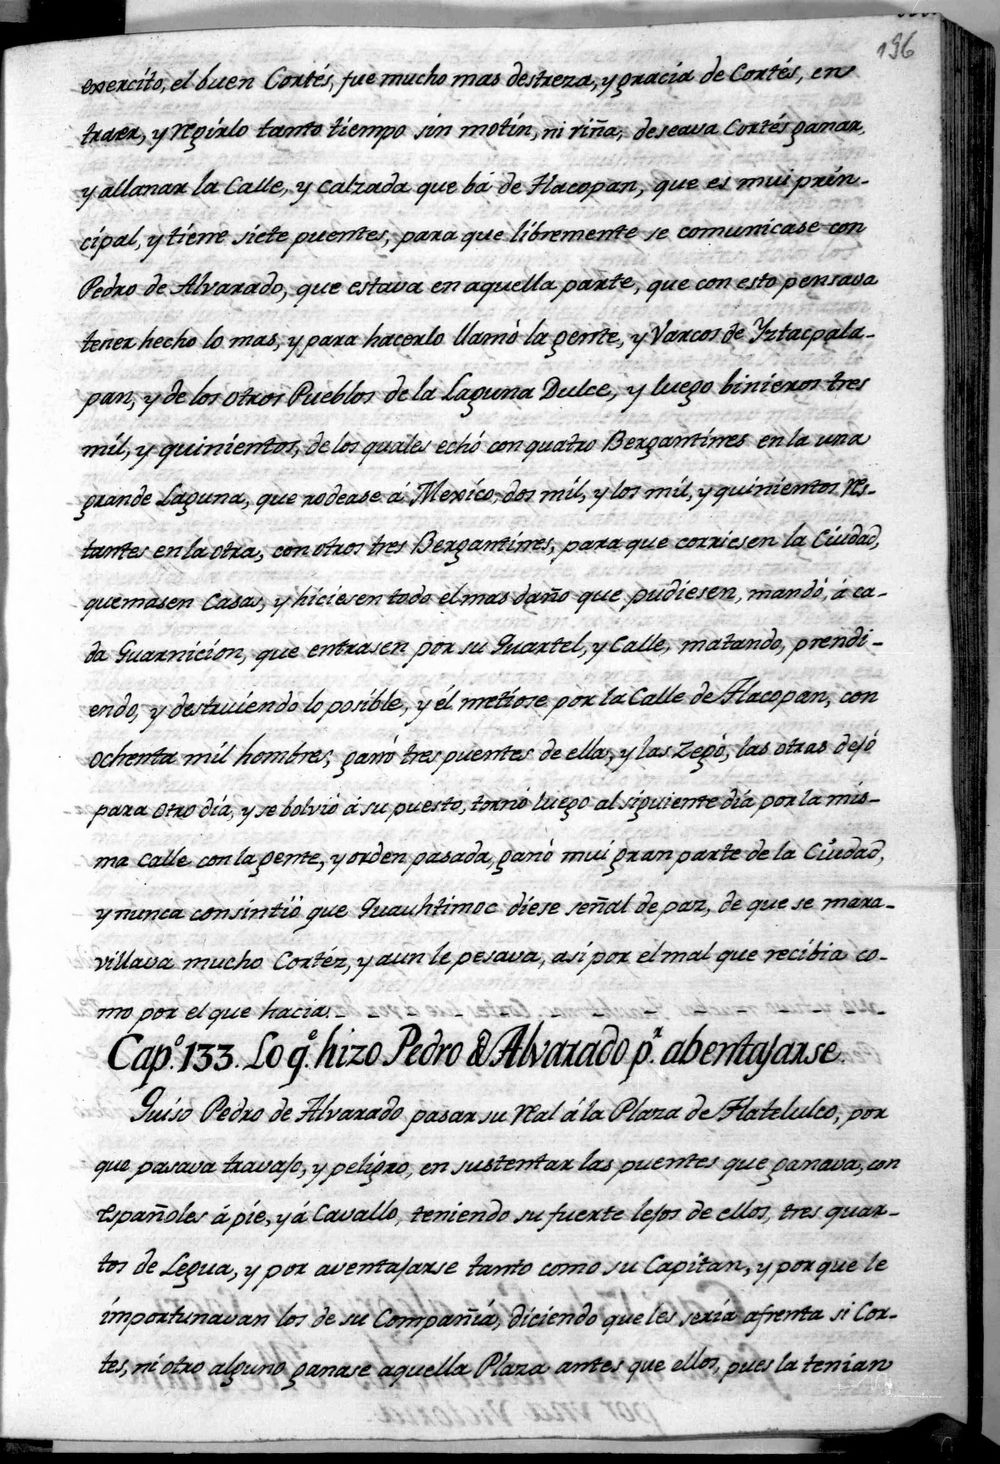 196
exercito, el buen Cortés, fue mucho mas destreza, y gracia de Cortés, en
traer, y regirlo tanto tiempo sin motin, ni riña, deseava Cortés ganar,
y allanar la Calle, y calzada que bá de Tlacopan, que es mui prin-
cipal, y tiene siete puentes, para que libremente se comunicase con
Pedro de Alvarado, que estava en aquella parte, que con esto pensava
tener hecho lo mas, y para hacerlo llamó la gente, y Varcos de Yztacpala-
pan, y de los otros Pueblos de la Laguna Dulce, y luego binieros tres
mil, y quinientos, de los quales echó con quatro Bergantines en la una
grande Laguna, que rodease á Mexico, dos mil, y los mil, y quinientos res-
tantes en la otra, con otros tres Bergantines, para que corriesen la Ciudad,
quemasen Casas, y hiciesen todo el mas daño que pudiesen, mandó, á ca-
da Guarnicion, que entrasen por su Quartel, y Calle, matando, prendi-
endo, y destruiendo lo posible, y él metiose por la Calle de Tlacopan, con
ochenta mil hombres, ganó tres puentes de ella, y las Zegó, las otras dejó
para otro dia, y se bolvió á su puesto, tornó luego al siguiente dia por la mis-
ma calle con la gente, y orden pasada, ganó mui gran parte de la Ciudad,
y nunca consintió que Quauhtimoc diese señal de paz, de que se mara-
villava mucho Cortéz, y aun le pesava, asi por el mal que recibia co-
mo por el que hacia.
Capº. 133. Lo qº. hizo Pedro de Alvarado pʳ. abentajarse.
Quiso Pedro de Alvarado pasar su real á la Plaza de Tlatelulco, por
que pasava travajo, y peligro, en sustentar las puentes que ganava, con
españoles á pie, y á Cavallo, teniendo su fuerte lejos de ellos, tres quar-
tos de Legua, y por aventajarse tanto como su Capitan, y porque le
importunavan los de su Compañiá, diciendo que les seria afrenta si Cor-
tes, ni otro alguno ganase aquella Plaza antes que ellos, pues la tenian